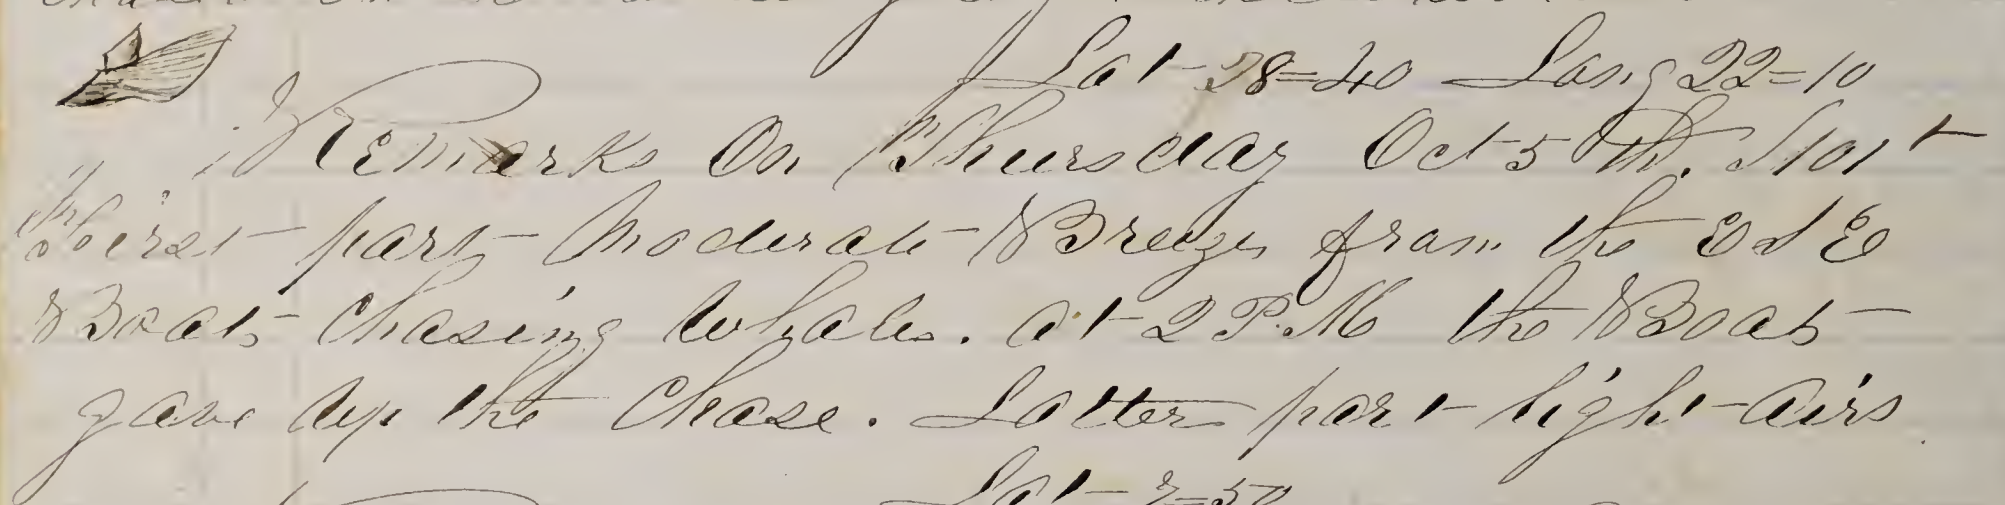 Lat 28=40 Long 22=10
Remarks On Thursday Oct 5th.
First part Moderate Breezes from the E S E
Boats Chasing Whales. at 2 P.M the Boats
gave up the Chase. Latter part light Airs
Lat